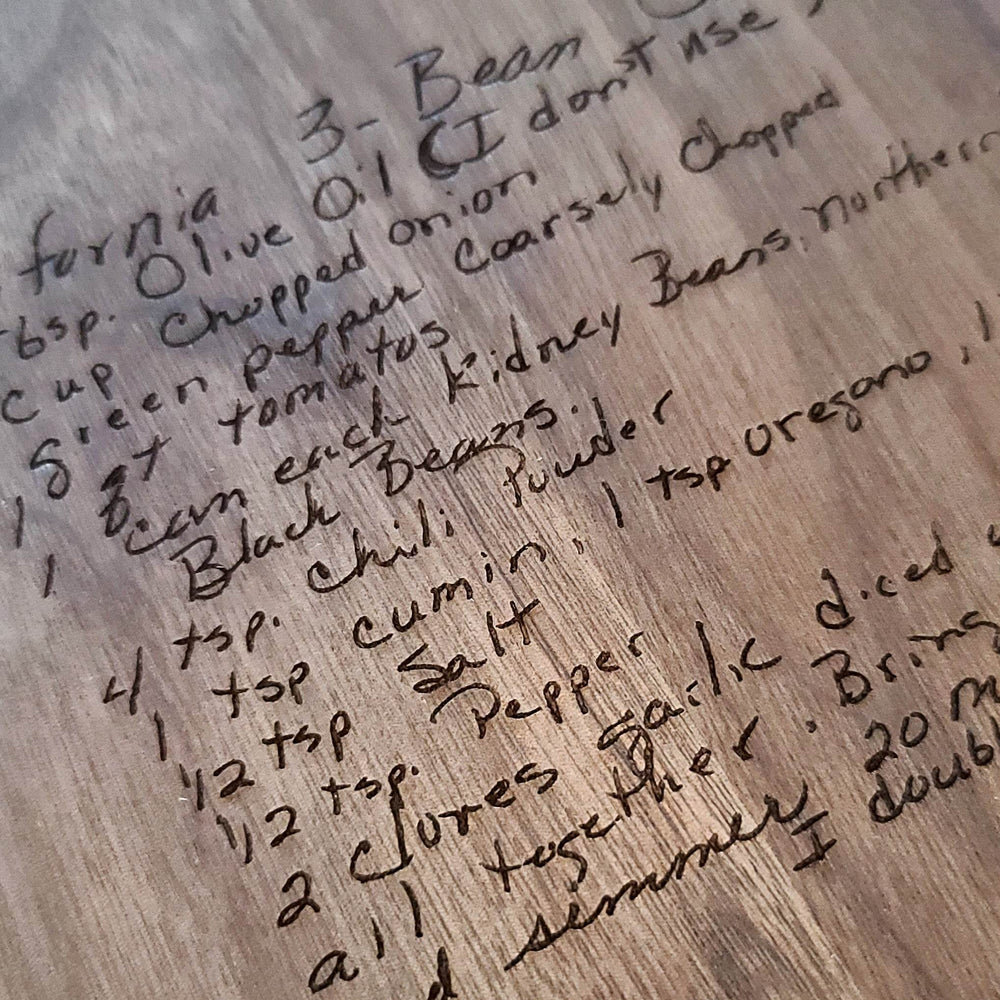 fornia 3- Bean
tbsp. Olive Oil (I don't use
cup Chopped onion
green pepper Coarsely Chopped
1 qt tomatos
1 can each Kidney Beans, northern
Black Beans
4 tsp. Chili Powder
1 tsp cumin, 1 tsp oregano, 1
1/2 tsp Salt
1/2 tsp. Pepper
2 cloves garlic diced
all together. Bring
d simmer 20 m
I doubl